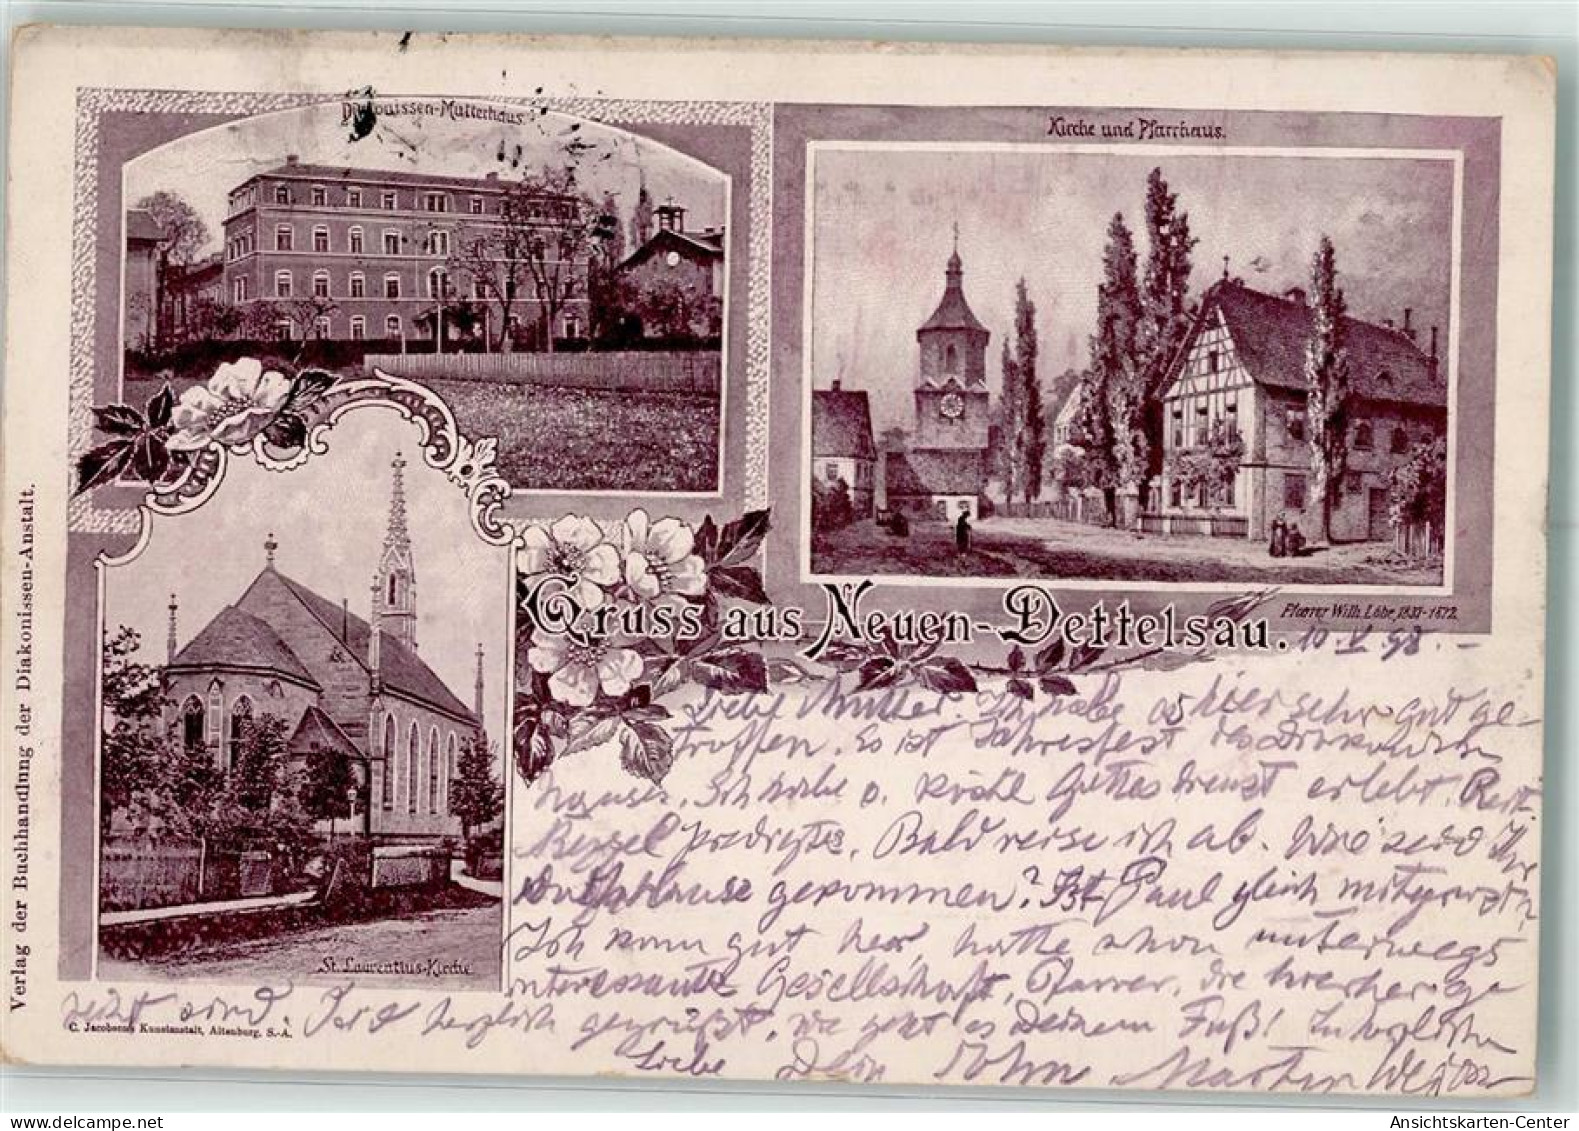 Diakonissen-Mutterhaus.
Kirche und Pfarrhaus.
Pfarrer Wilh. Löhe 1837-1872.
Gruss aus Neuen-Dettelsau.
St. Laurentius-Kirche
Verlag der Buchhandlung der Diakonissen-Anstalt.
C. Jacobsens Kunstanstalt, Altenburg, S.-A.
10. V. 98.
Liebe Mutter. Ich habe es hier sehr gut ge-
troffen. Es ist Jahresfest des Diakonissen
hauses. Ich habe o. Gottesdienst erlebt.
Bezzel predigte. Bald reise ich ab. Wie seid Ihr
nach Hause gekommen? Ist Paul gleich mitgereist?
Ich kam gut her, hatte schon unterwegs
interessante Gesellschaft, Pfarrer, die hierher ge
reist sind. Seid herzlich gegrüßt, wie geht es Deinem Fuß! In herzlicher
Liebe Dein Sohn Martin
Ansichtskarten-Center